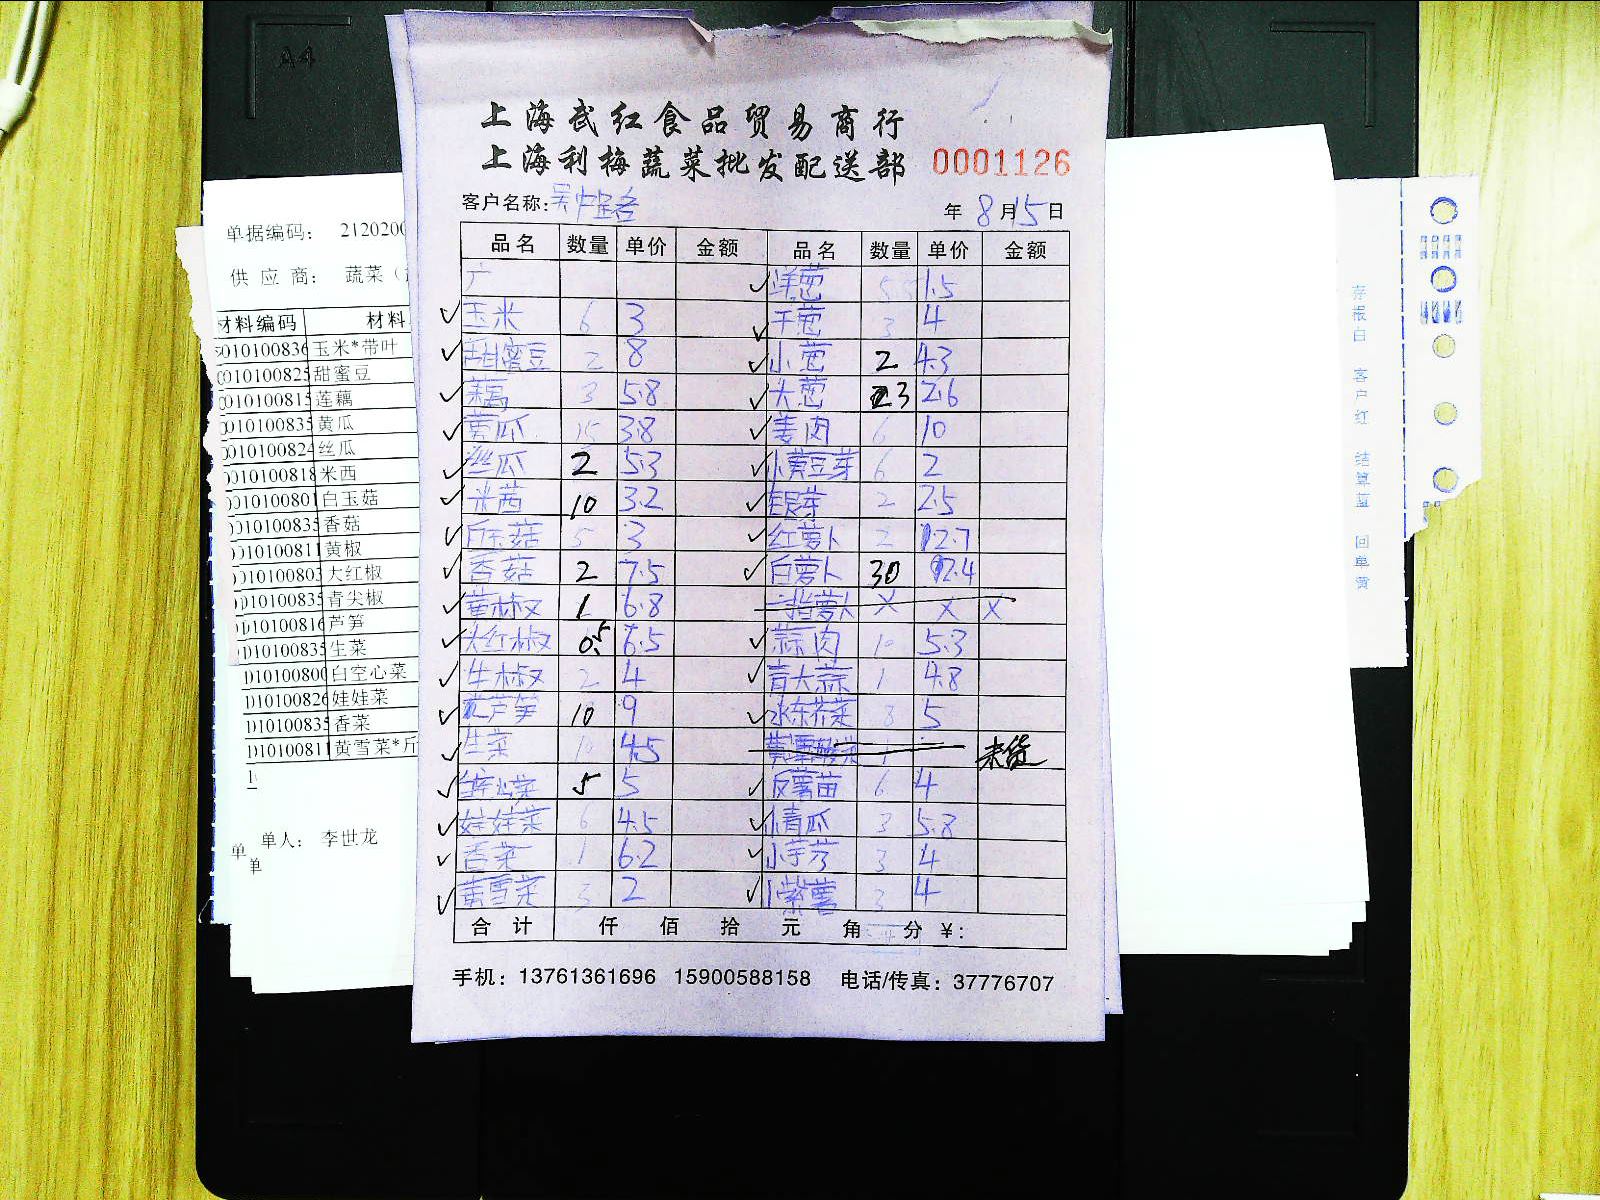 A4
上海武红食品贸易商行
上海利梅蔬菜批发配送部 0001126
客户名称: 年 8月15日
品名 数量 单价 金额 品名 数量 单价 金额
洋葱 1.5
玉米 6 3 干葱 3 4
甜蜜豆 2 8 小葱 2 4.3
藕 3 5.8 大葱 3 2.6
黄瓜 15 3.8 姜肉 6 10
丝瓜 2 5.3 小黄豆芽 6 2
米茜 10 3.2 银芽 2 2.5
白玉菇 5 3 红萝卜 2 2.7
香菇 2 7.5 白萝卜 30 2.4
黄椒 1 6.8 萝卜 X X X
大红椒 0.5 6.5 蒜肉 10 5.3
尖椒 2 4 青大蒜 1 4.8
芦笋 10 9 水东芥菜 8 5
生菜 10 4.5 未货
空心菜 5 5 番薯苗 6 4
娃娃菜 6 4.5 小青瓜 3 5.8
香菜 1 6.2 小芋艿 3 4
黄雪菜 3 2 小紫薯 3 4
合计 仟 佰 拾 元 角 分 ¥:
手机: 13761361696 15900588158 电话/传真: 37776707
单据编码: 2120200
供应商: 蔬菜
材料编码 材料
010100836 玉米*带叶
010100825 甜蜜豆
010100815 莲藕
010100835 黄瓜
010100824 丝瓜
010100818 米西
010100801 白玉菇
010100835 香菇
010100811 黄椒
010100803 大红椒
010100835 青尖椒
010100816 芦笋
010100835 生菜
010100800 白空心菜
010100826 娃娃菜
010100835 香菜
010100811 黄雪菜*斤
单人: 李世龙
单
单
存根白 客户红 结算蓝 回单黄